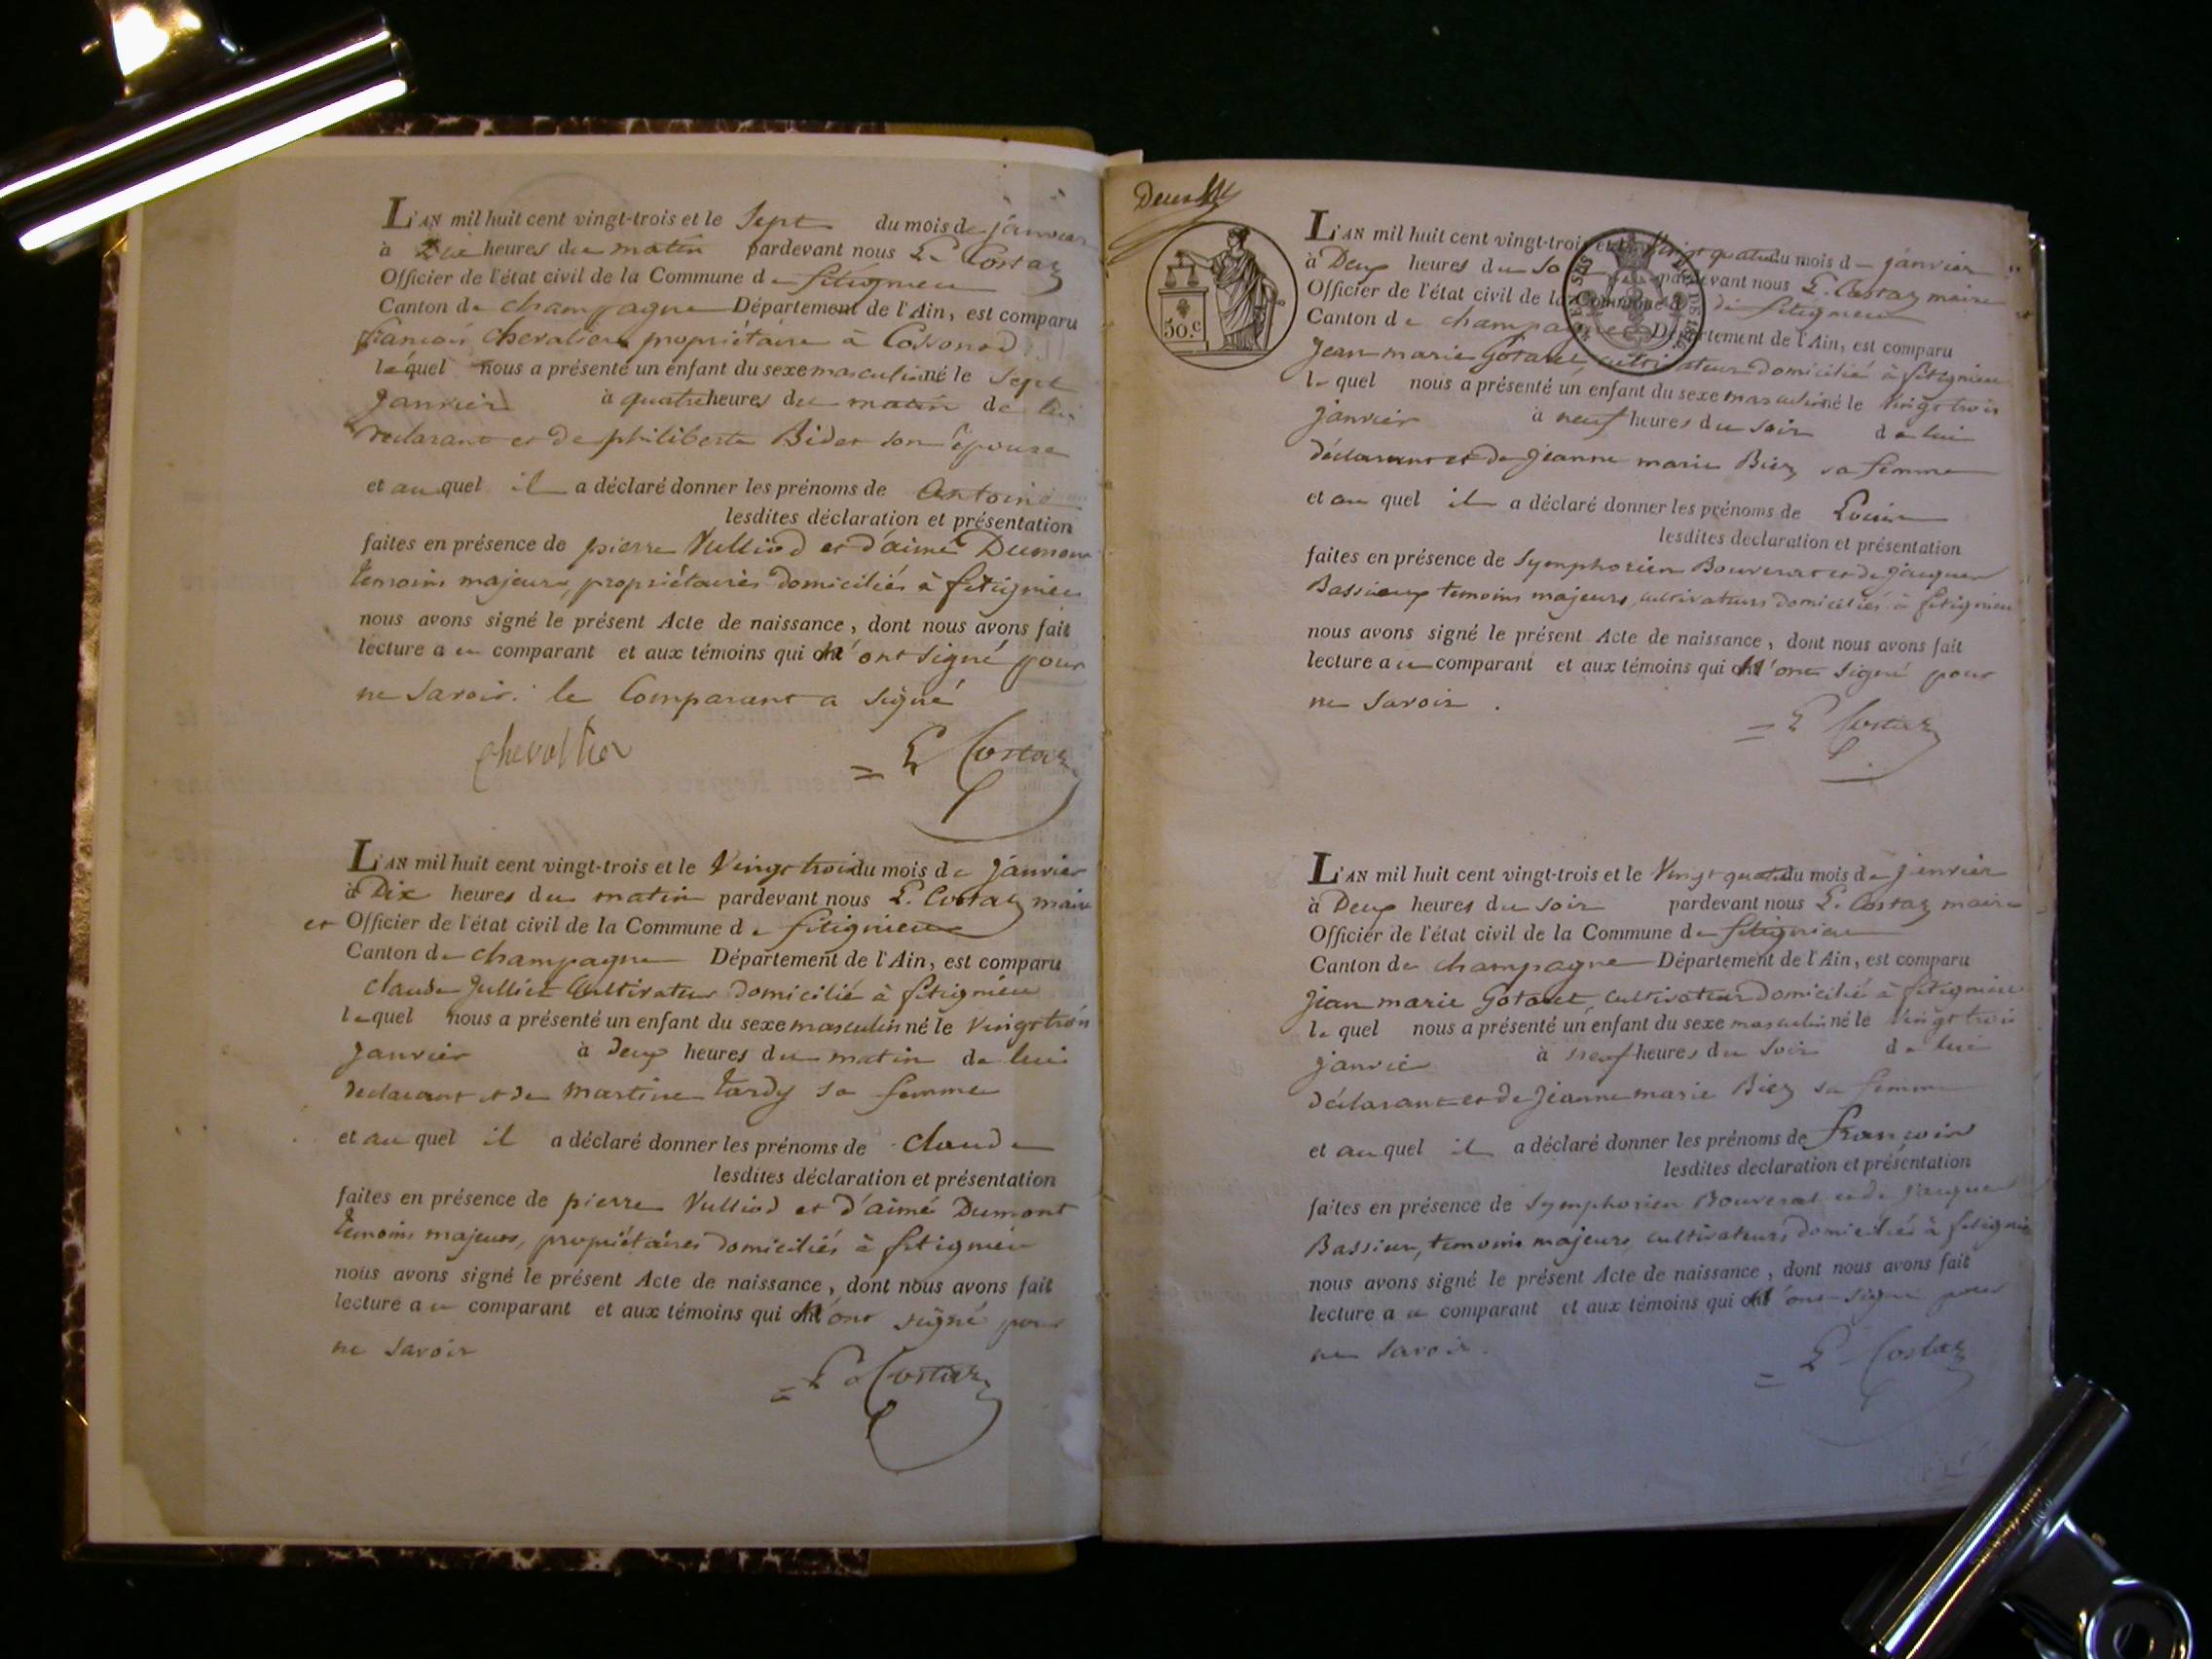 L'AN mil huit cent vingt-trois et le Sept du mois de janvier
à Dix heures du matin pardevant nous L. Costaz
Officier de l'état civil de la Commune de fitignieu
Canton de champagne Département de l'Ain, est comparu
françois chevalier propriétaire à Cossonod
lequel nous a présenté un enfant du sexe masculin né le Sept
Janvier à quatre heures du matin de lui
declarant et de philiberte Bidet son épouse
et auquel il a déclaré donner les prénoms de Antoine
lesdites déclaration et présentation
faites en présence de pierre Vulliod et d'aimé Dumont
temoins majeurs, propriétaires domiciliés à fitignieu
nous avons signé le présent Acte de naissance, dont nous avons fait
lecture au comparant et aux témoins qui n'ont signé pour
ne savoir. le Comparant a signé
chevallier = L Costaz
L'AN mil huit cent vingt-trois et le Vingt trois du mois de janvier
à Dix heures du matin pardevant nous L. Costaz maire
et Officier de l'état civil de la Commune de fitignieu
Canton de champagne Département de l'Ain, est comparu
claude Julliet Cultivateur domicilié à fitignieu
lequel nous a présenté un enfant du sexe masculin né le Vingt trois
janvier à deux heures du matin de lui
declarant et de martine tardy sa femme
et au quel il a déclaré donner les prénoms de claude
lesdites déclaration et présentation
faites en présence de pierre Vulliod et d'aimé Dumont
temoins majeurs, propriétaires domiciliés à fitignieu
nous avons signé le présent Acte de naissance, dont nous avons fait
lecture au comparant et aux témoins qui n'ont signé pour
ne savoir
= L Costaz
50.c
L'AN mil huit cent vingt-trois et le Vingt quatre du mois de janvier
à Deux heures du soir pardevant nous L. Costaz maire
Officier de l'état civil de la Commune de fitignieu
Canton de champagne Département de l'Ain, est comparu
Jean marie Gotaret, cultivateur domicilié à fitignieu
lequel nous a présenté un enfant du sexe masculin né le Vingt trois
janvier à neuf heures du soir de lui
déclarant et de Jeanne marie Biez sa femme
et au quel il a déclaré donner les prénoms de
lesdites déclaration et présentation
faites en présence de Symphorien Bouverat et de jacques
Bassieux temoins majeurs, cultivateurs domiciliés à fitignieu
nous avons signé le présent Acte de naissance, dont nous avons fait
lecture au comparant et aux témoins qui n'ont signé pour
ne savoir.
= L Costaz
L'AN mil huit cent vingt-trois et le Vingt quatre du mois de janvier
à Deux heures du soir pardevant nous L. Costaz maire
Officier de l'état civil de la Commune de fitignieu
Canton de champagne Département de l'Ain, est comparu
jean marie Gotaret, cultivateur domicilié à fitignieu
lequel nous a présenté un enfant du sexe masculin né le Vingt trois
janvier à neuf heures du soir de lui
déclarant et de Jeanne marie Biez sa femme
et au quel il a déclaré donner les prénoms de françois
lesdites déclaration et présentation
faites en présence de Symphorien Bouverat et de jacques
Bassieux, temoins majeurs, cultivateurs domiciliés à fitignieu
nous avons signé le présent Acte de naissance, dont nous avons fait
lecture au comparant et aux témoins qui n'ont signé pour
ne savoir.
= L Costaz